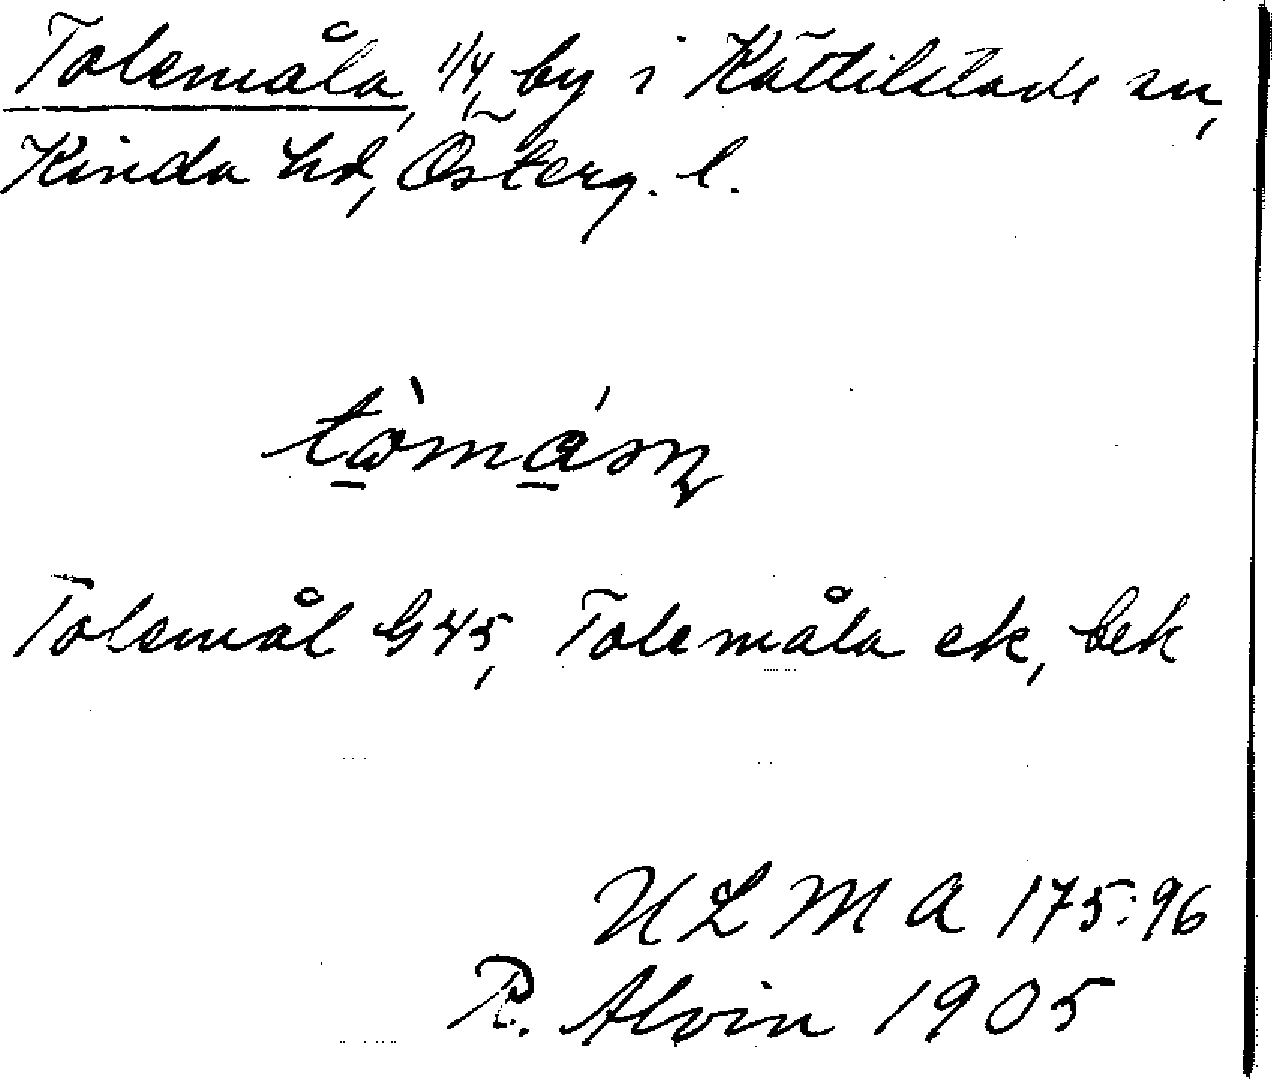 Tolemåla, 1/4, by i Kättilstads sn,
Kinda hd, Österg. l.
Tolemål G45, Tolemåla ek, bek
ULMA 175:96
R. Alvin 1905